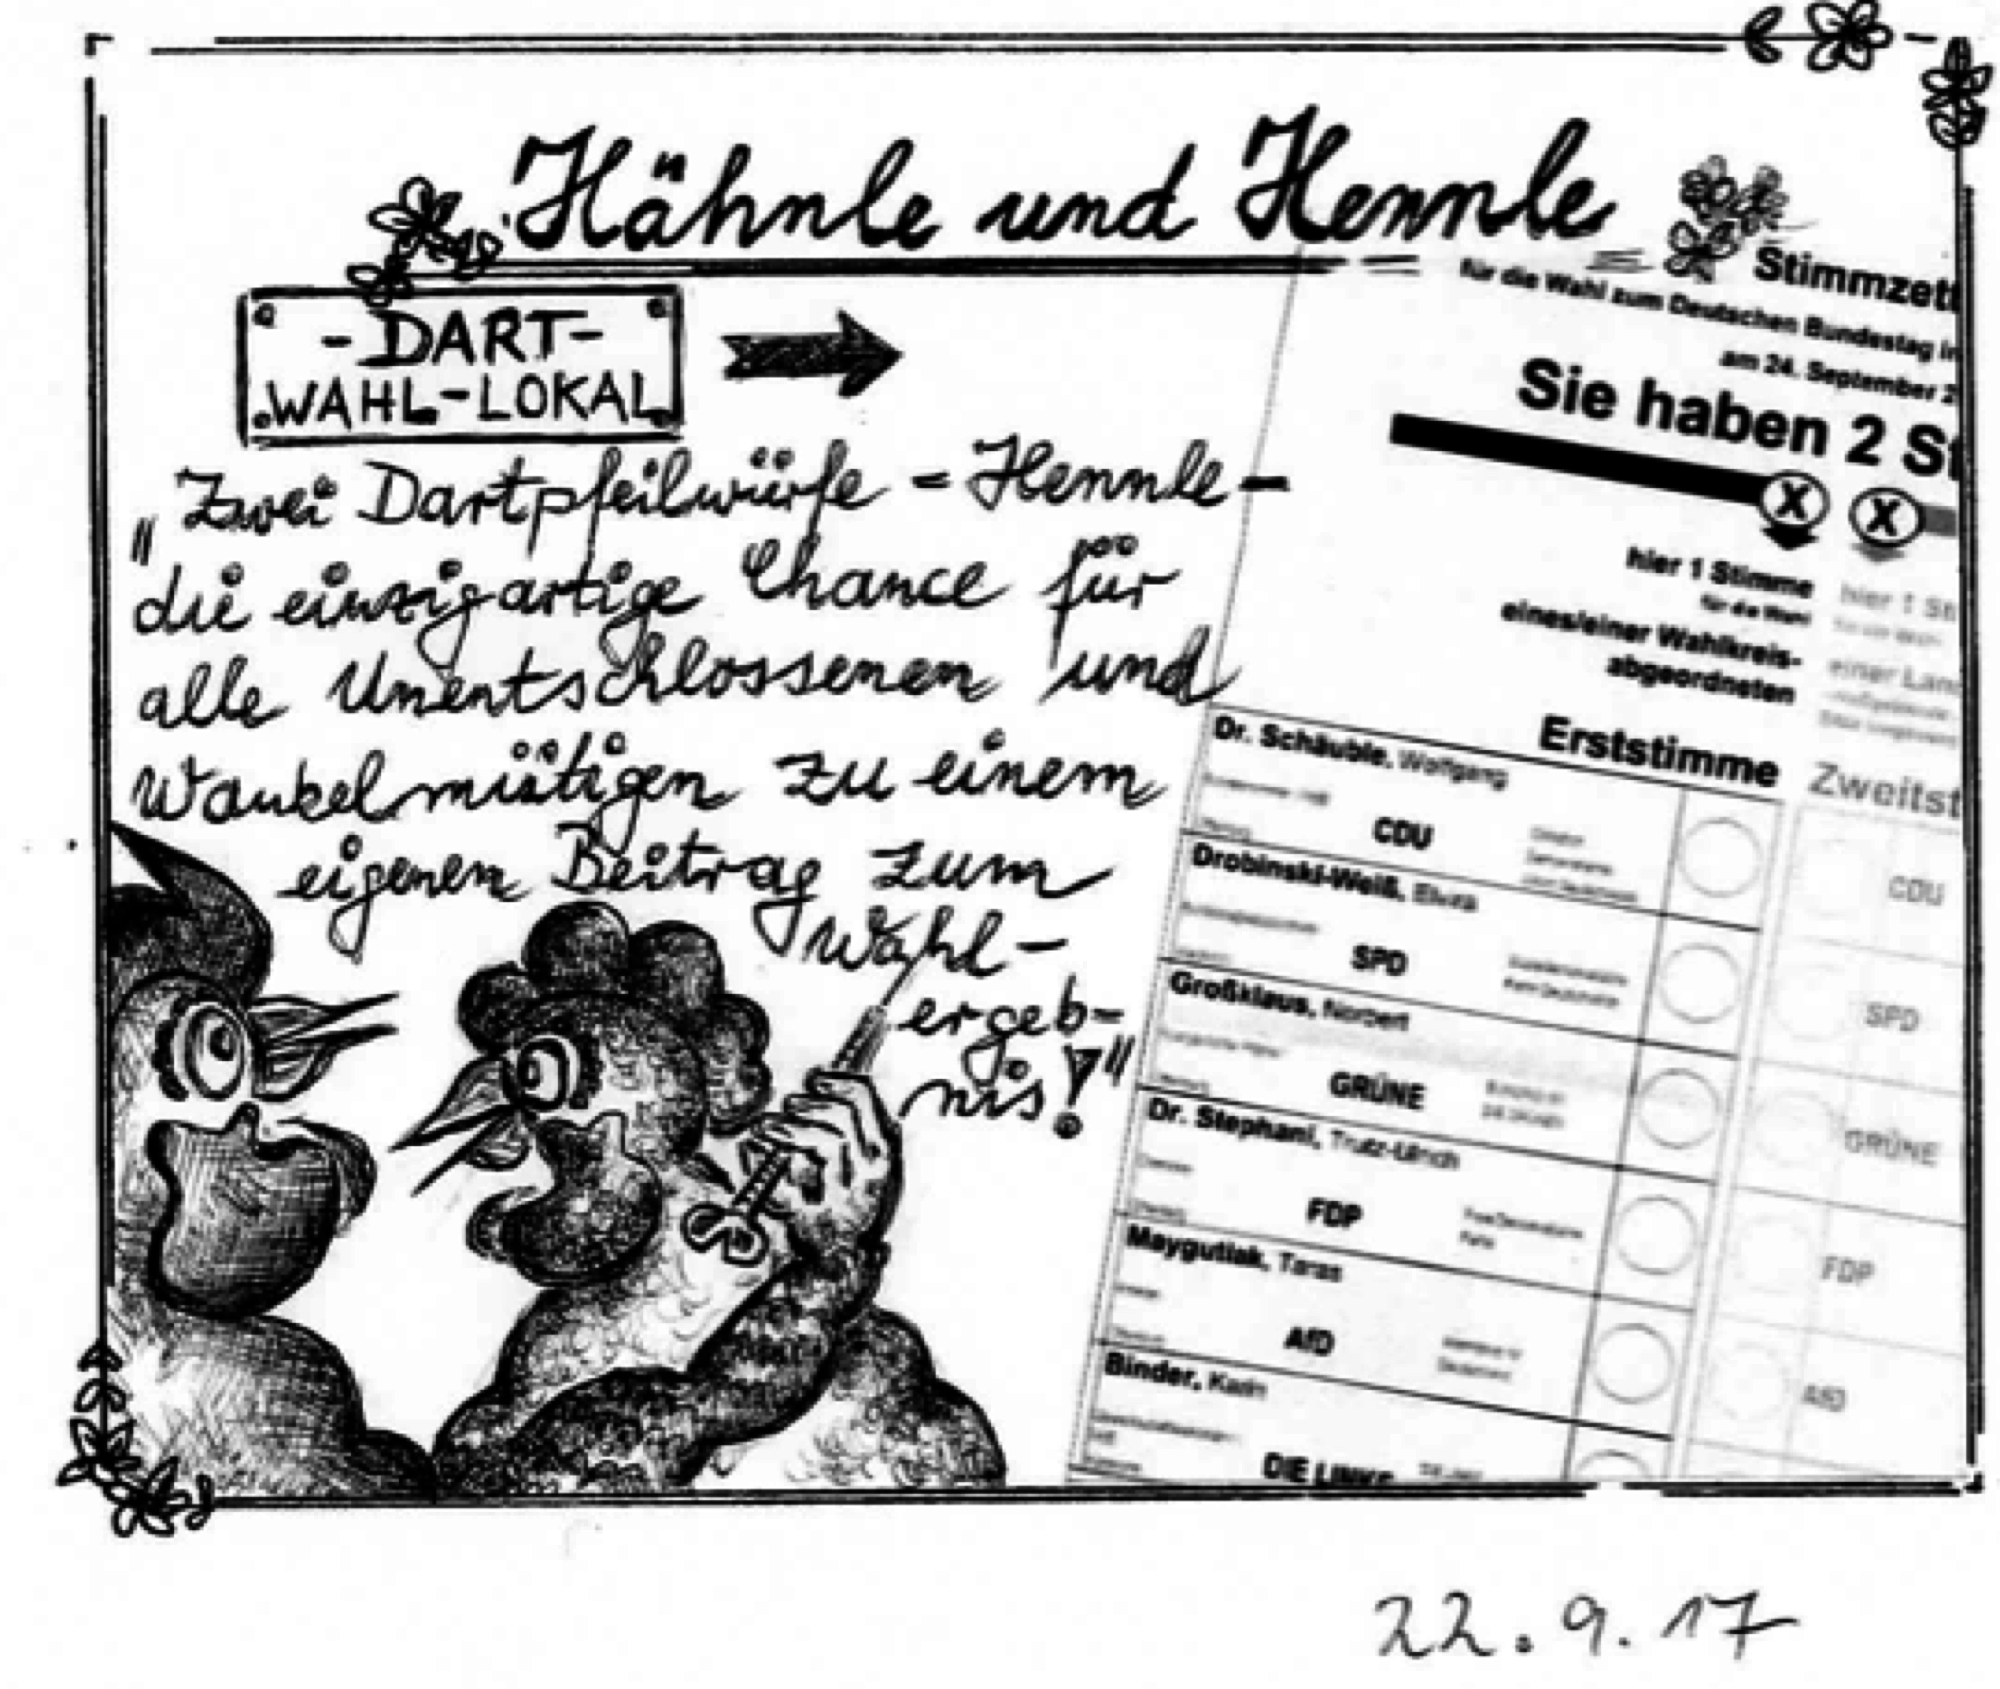 Hähnle und Hennle
- DART-
WAHL-LOKAL
"Zwei Dartpfeilwürfe - Hennle -
die einzigartige Chance für
alle Unentschlossenen und
Wankelmütigen zu einem
eigenen Beitrag zum
Wahl-
ergeb-
nis!"
Stimmzett
für die Wahl zum Deutschen Bundestag i
am 24. September 2
Sie haben 2 St
X X
hier 1 Stimme
für die Wahl
eines/einer Wahlkreis-
abgeordneten
hier 1 St
einer Lan
Erststimme
Zweitst
Dr. Schäuble, Wolfgang
CDU
CDU
Drobinski-Weiß, Elvira
SPD
SPD
Großklaus, Norbert
GRÜNE
GRÜNE
Dr. Stephani, Trutz-Ulrich
FDP
FDP
Maygutiak, Taras
AfD
AfD
Binder, Karin
DIE LINKE
22.9.17